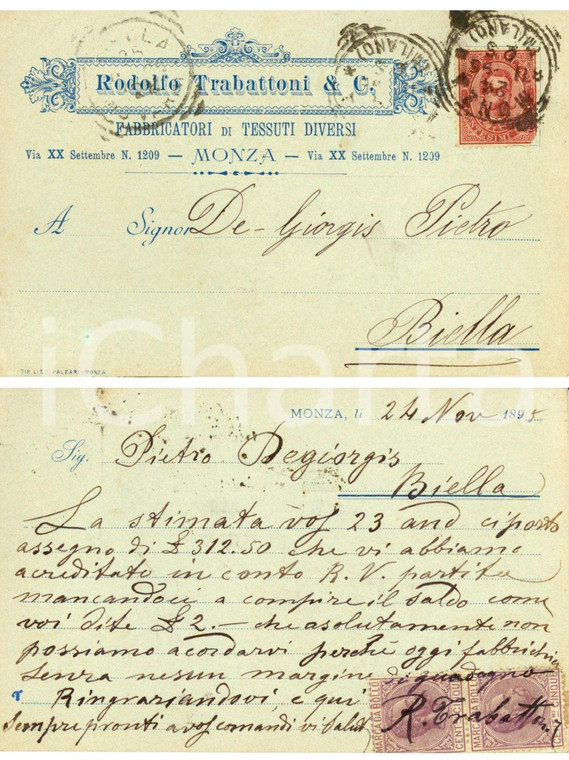 Rodolfo Trabattoni & C.
FABBRICATORI DI TESSUTI DIVERSI
Via XX Settembre N. 1209 — MONZA — Via XX Settembre N. 1209
A Signor De-Giorgis Pietro
Biella
TIP. LIT. L. PALEARI - MONZA
iCharta
MONZA, li 24 Nov 1895
Sig. Pietro Degiorgis
Biella
La stimata vos 23 and ci portò
assegno di £ 312.50 che vi abbiamo
acreditato in conto R. V. partita
mancandoci a compire il saldo come
voi dite £ 2.— che asolutamente non
possiamo acordarvi perchè oggi fabbrichia
senza nessun margine di guadagno
Ringraziandovi, e qui
sempre pronti a vos comandi vi salut
R. Trabattoni
MARCA DA BOLLO
MARCA DA BOLLO